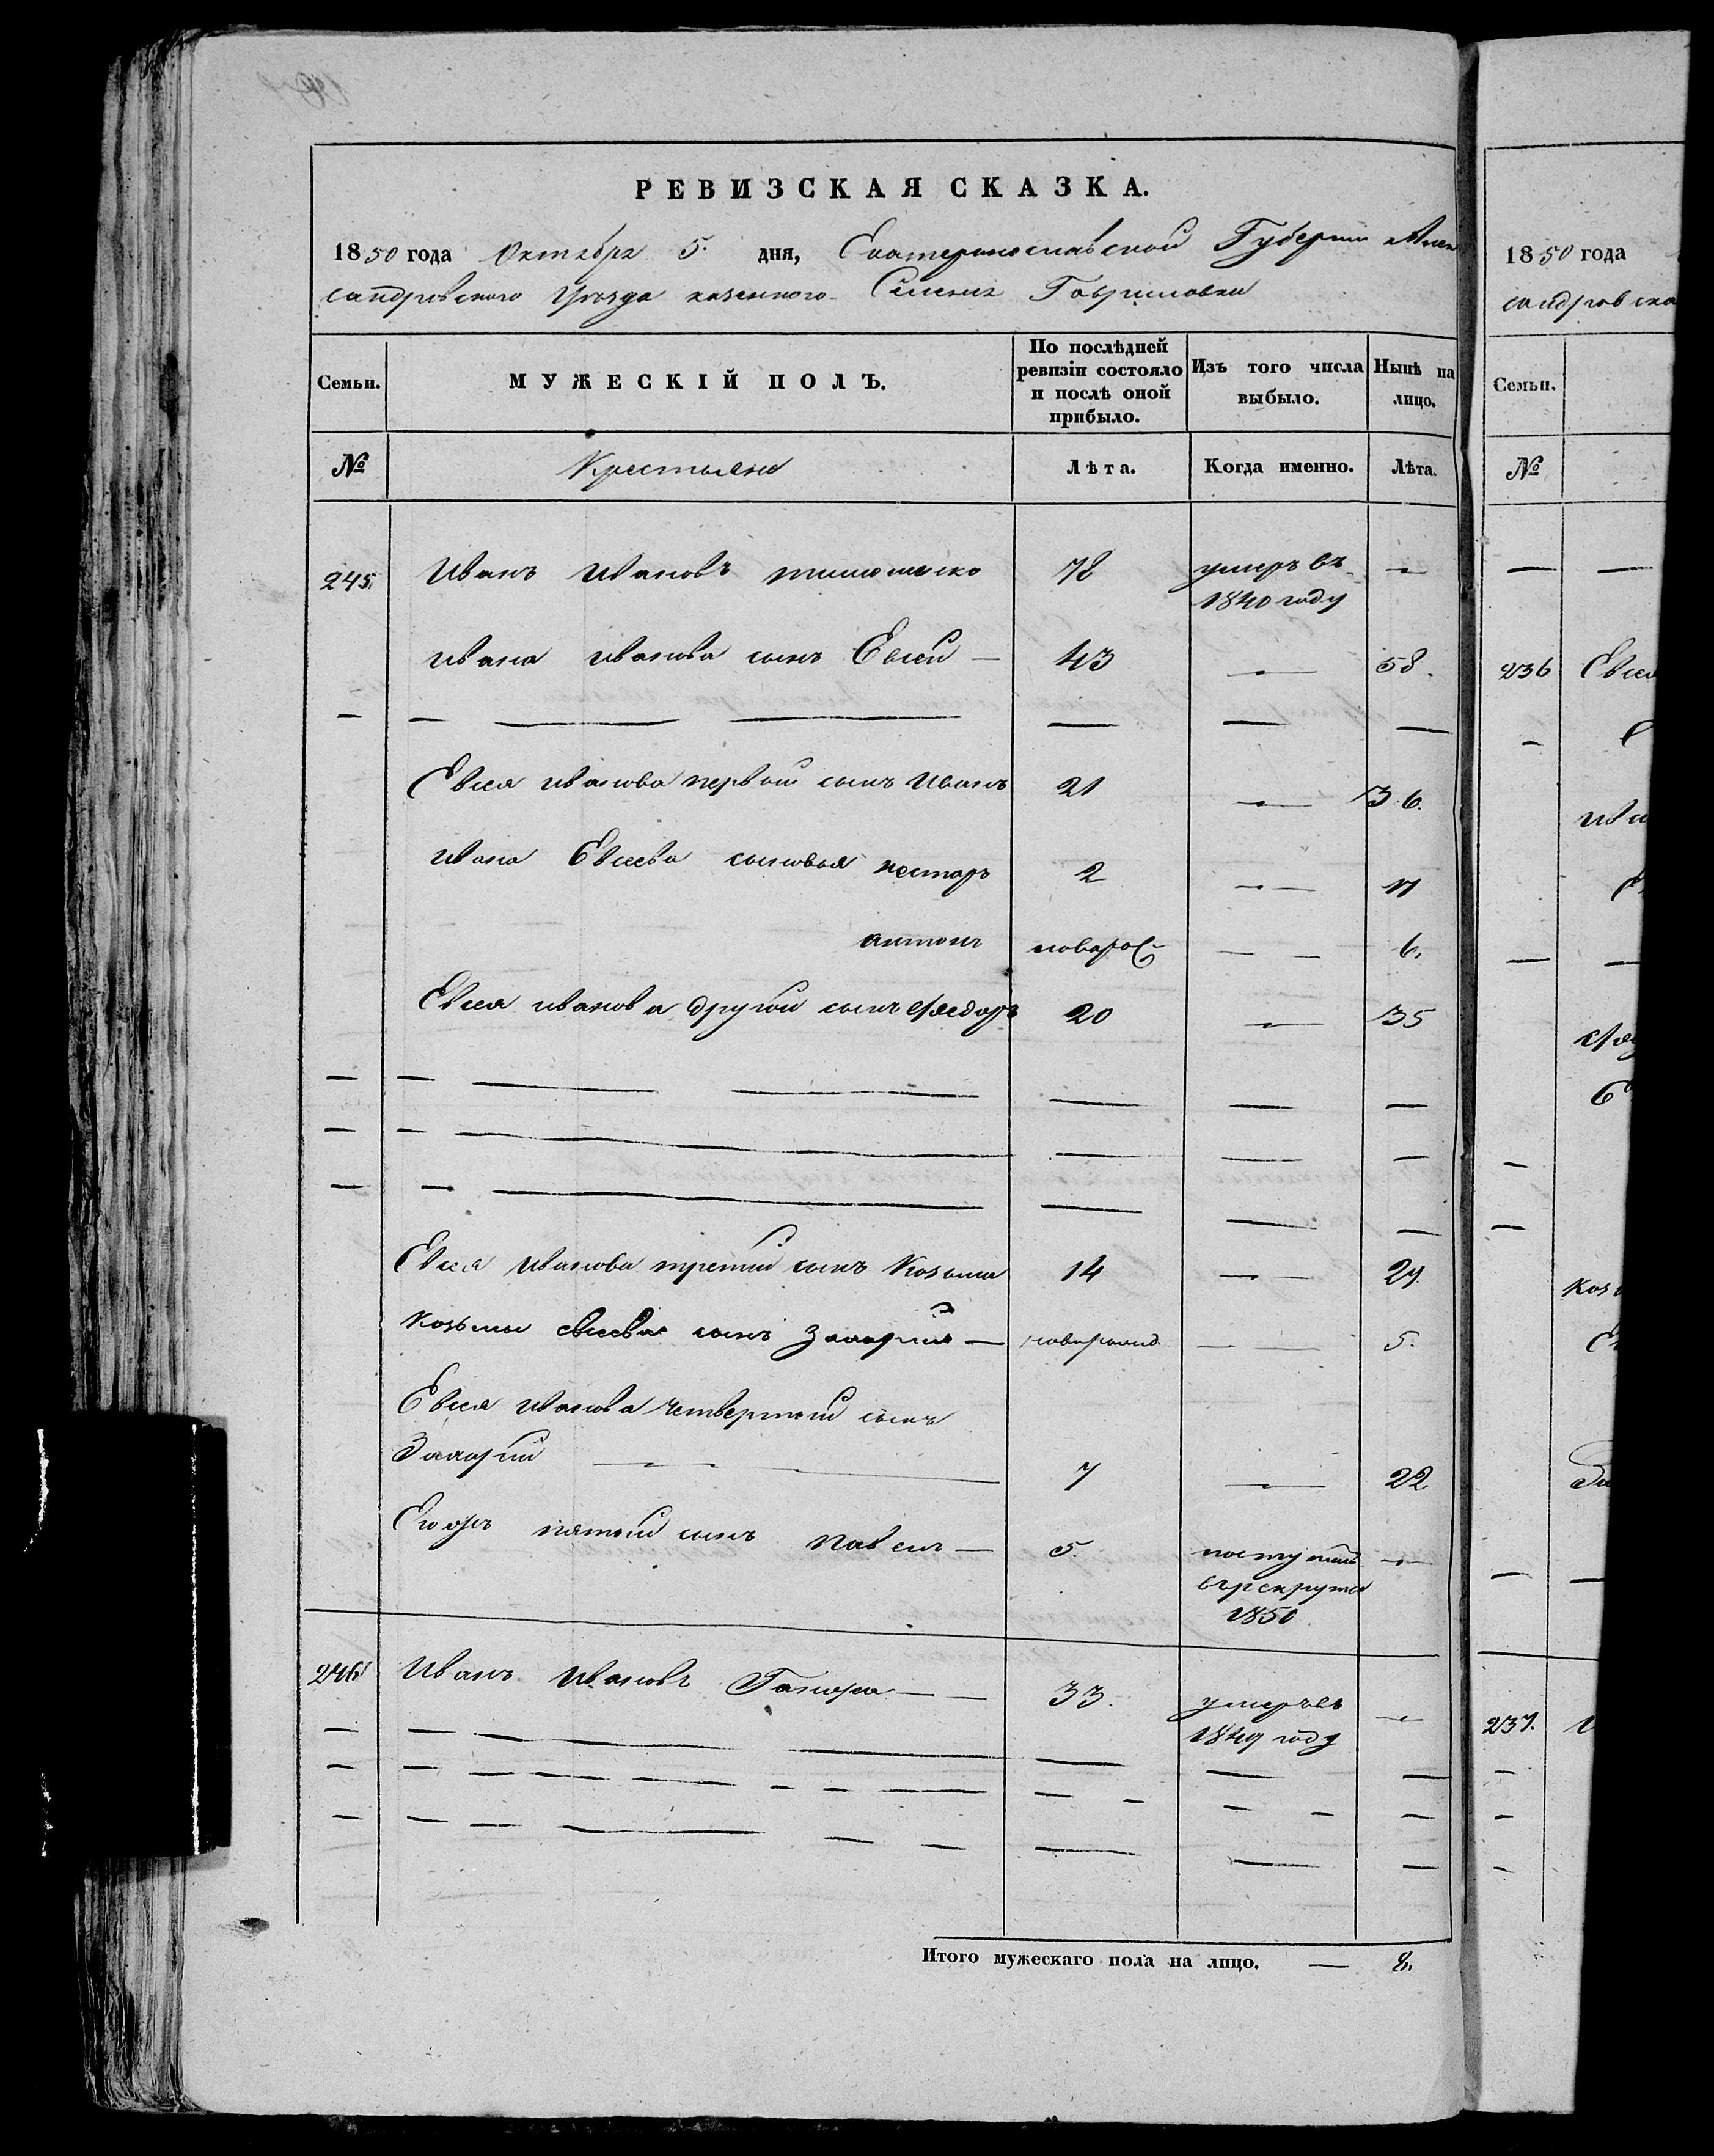 РЕВИЗСКАЯ СКАЗКА.
1850 года Октября 5. дня, Екатеринославской Губернии Алек
сандровского Уезда казенного Селения Гавриловки
Семьи. МУЖЕСКІЙ ПОЛЪ. По послѣдней ревизіи состояло и послѣ оной прибыло. Изъ того числа выбыло. Нынѣ на лицо.
№ Крестьяне Лѣта. Когда именно. Лѣта.
245. Иванъ Ивановъ 78 умеръ въ —
1840 году
Ивана Иванова сынъ Евсей — 43 — 58.
— — — — — — —
Евсея Иванова первый сынъ Иванъ 21 — 36.
Ивана Евсеева сыновья Нестаръ 2 — — 17
антонъ новорож — — 6.
Евсея Иванова другой сынъ Федоръ 20 — 35
— — — — — — —
— — — — — —
— — — — — —
Евсея Иванова третий сынъ Козьма 14 — — 29.
Козьмы Евсеева сынъ Захарий — новорожд — — 5.
Евсея Иванова четвертый сынъ
Захарий — 7 — 22
пятый сынъ Павелъ — 5. поступил —
в рекруты
1850
246 Иванъ Ивановъ — — 33. умеръ въ —
1849 году
— — — — — — —
— — — — — — — — — — — — —
— — — — — — — — —
Итого мужескаго пола на лицо. — 8.
1850 года
сандровско
Семьи.
№
— —
236 Евсея
— Е
Ив
— —
Фед
—
—
Козь
Е
За
— —
237. И
—
—
—